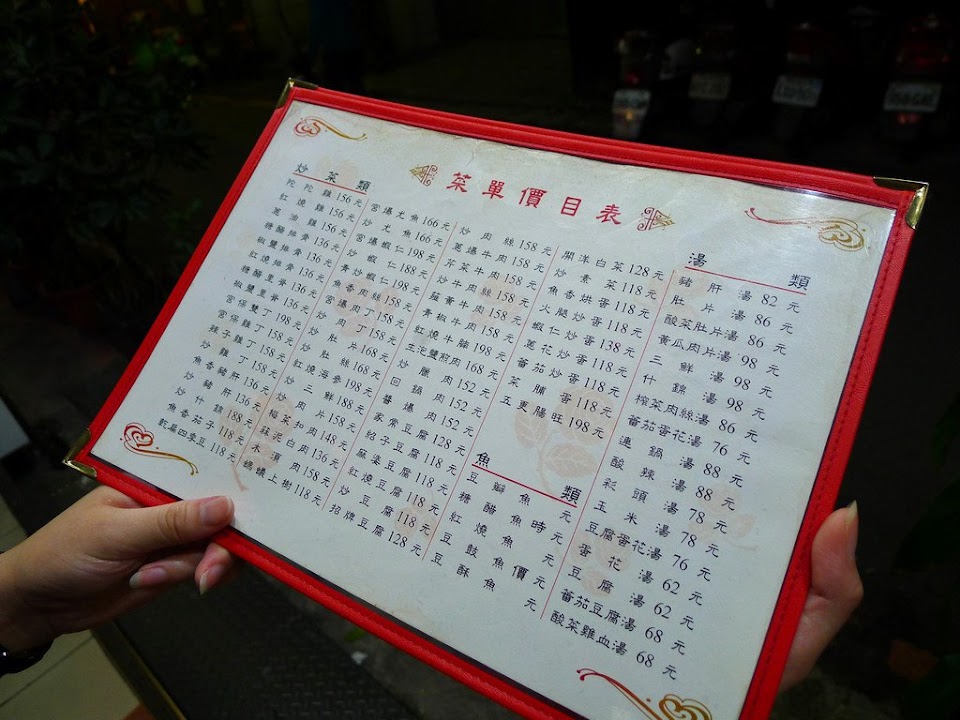 菜單價目表
炒菜類
陀陀雞 156元
紅燒雞 156元
蔥油雞 156元
糖醋排骨 136元
椒鹽排骨 136元
紅燒排骨 136元
糖醋里脊 136元
椒鹽里脊 136元
宮保雙丁 198元
宮保雞丁 158元
辣子雞丁 158元
炒雞丁 158元
魚香豬肝 136元
炒豬肝 136元
炒什錦 188元
魚香茄子 118元
乾扁四季豆 118元
宮爆尤魚 166元
炒尤魚 166元
宮爆蝦仁 198元
炒蝦仁 188元
青炒蝦仁 198元
魚香肉絲 158元
宮爆肉丁 158元
炒肉丁 158元
炒肚片 168元
炒肚絲 168元
紅燒海參 198元
炒三鮮 188元
炒肉片 158元
梅菜扣肉 148元
蒜泥白肉 136元
木須肉 158元
螞蟻上樹 118元
炒肉絲 158元
蔥爆牛肉 158元
芹菜牛肉 158元
炒牛肉絲 158元
牛肉 158元
青椒牛肉 158元
紅燒牛腩 198元
鹽煎肉 168元
炒臘肉 152元
回鍋肉 152元
醬爆肉 152元
家常豆腐 128元
紹子豆腐 118元
麻婆豆腐 118元
紅燒豆腐 118元
炒豆腐 118元
招牌豆腐 128元
開洋白菜 128元
炒素菜 118元
魚香烘蛋 118元
火腿炒蛋 118元
蝦仁炒蛋 138元
蔥花炒蛋 118元
蕃茄炒蛋 118元
菜脯蛋 118元
五更腸旺 198元
魚類
豆瓣魚 元
糖醋魚時元
紅燒魚 元
豆鼓魚價元
豆酥魚 元
湯類
豬肝湯 82元
肚片湯 86元
酸菜肚片湯 86元
黃瓜肉片湯 98元
三鮮湯 98元
什錦湯 98元
榨菜肉絲湯 86元
蕃茄蛋花湯 76元
連鍋湯 88元
酸辣湯 88元
彩頭湯 78元
玉米湯 78元
豆腐蛋花湯 76元
蛋花湯 62元
豆腐湯 62元
蕃茄豆腐湯 68元
酸菜雞血湯 68元